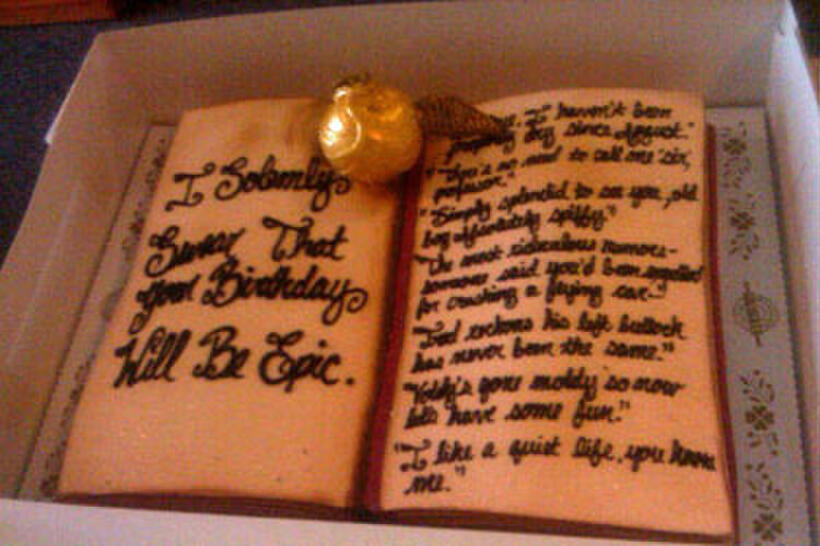 I Solemnly
Swear That
your Birthday
Will Be Epic.
I haven't been
properly dry since August."
"There's no need to call me 'sir,
professor."
"Simply splendid to see you, old
boy absolutely spiffy"
"The most ridiculous rumors-
someone said you'd been expelled
for crashing a flying car-"
"Fred reckons his left buttock
has never been the same."
"Voldy's gone moldy so now
let's have some fun."
"I like a quiet life, you know
me."